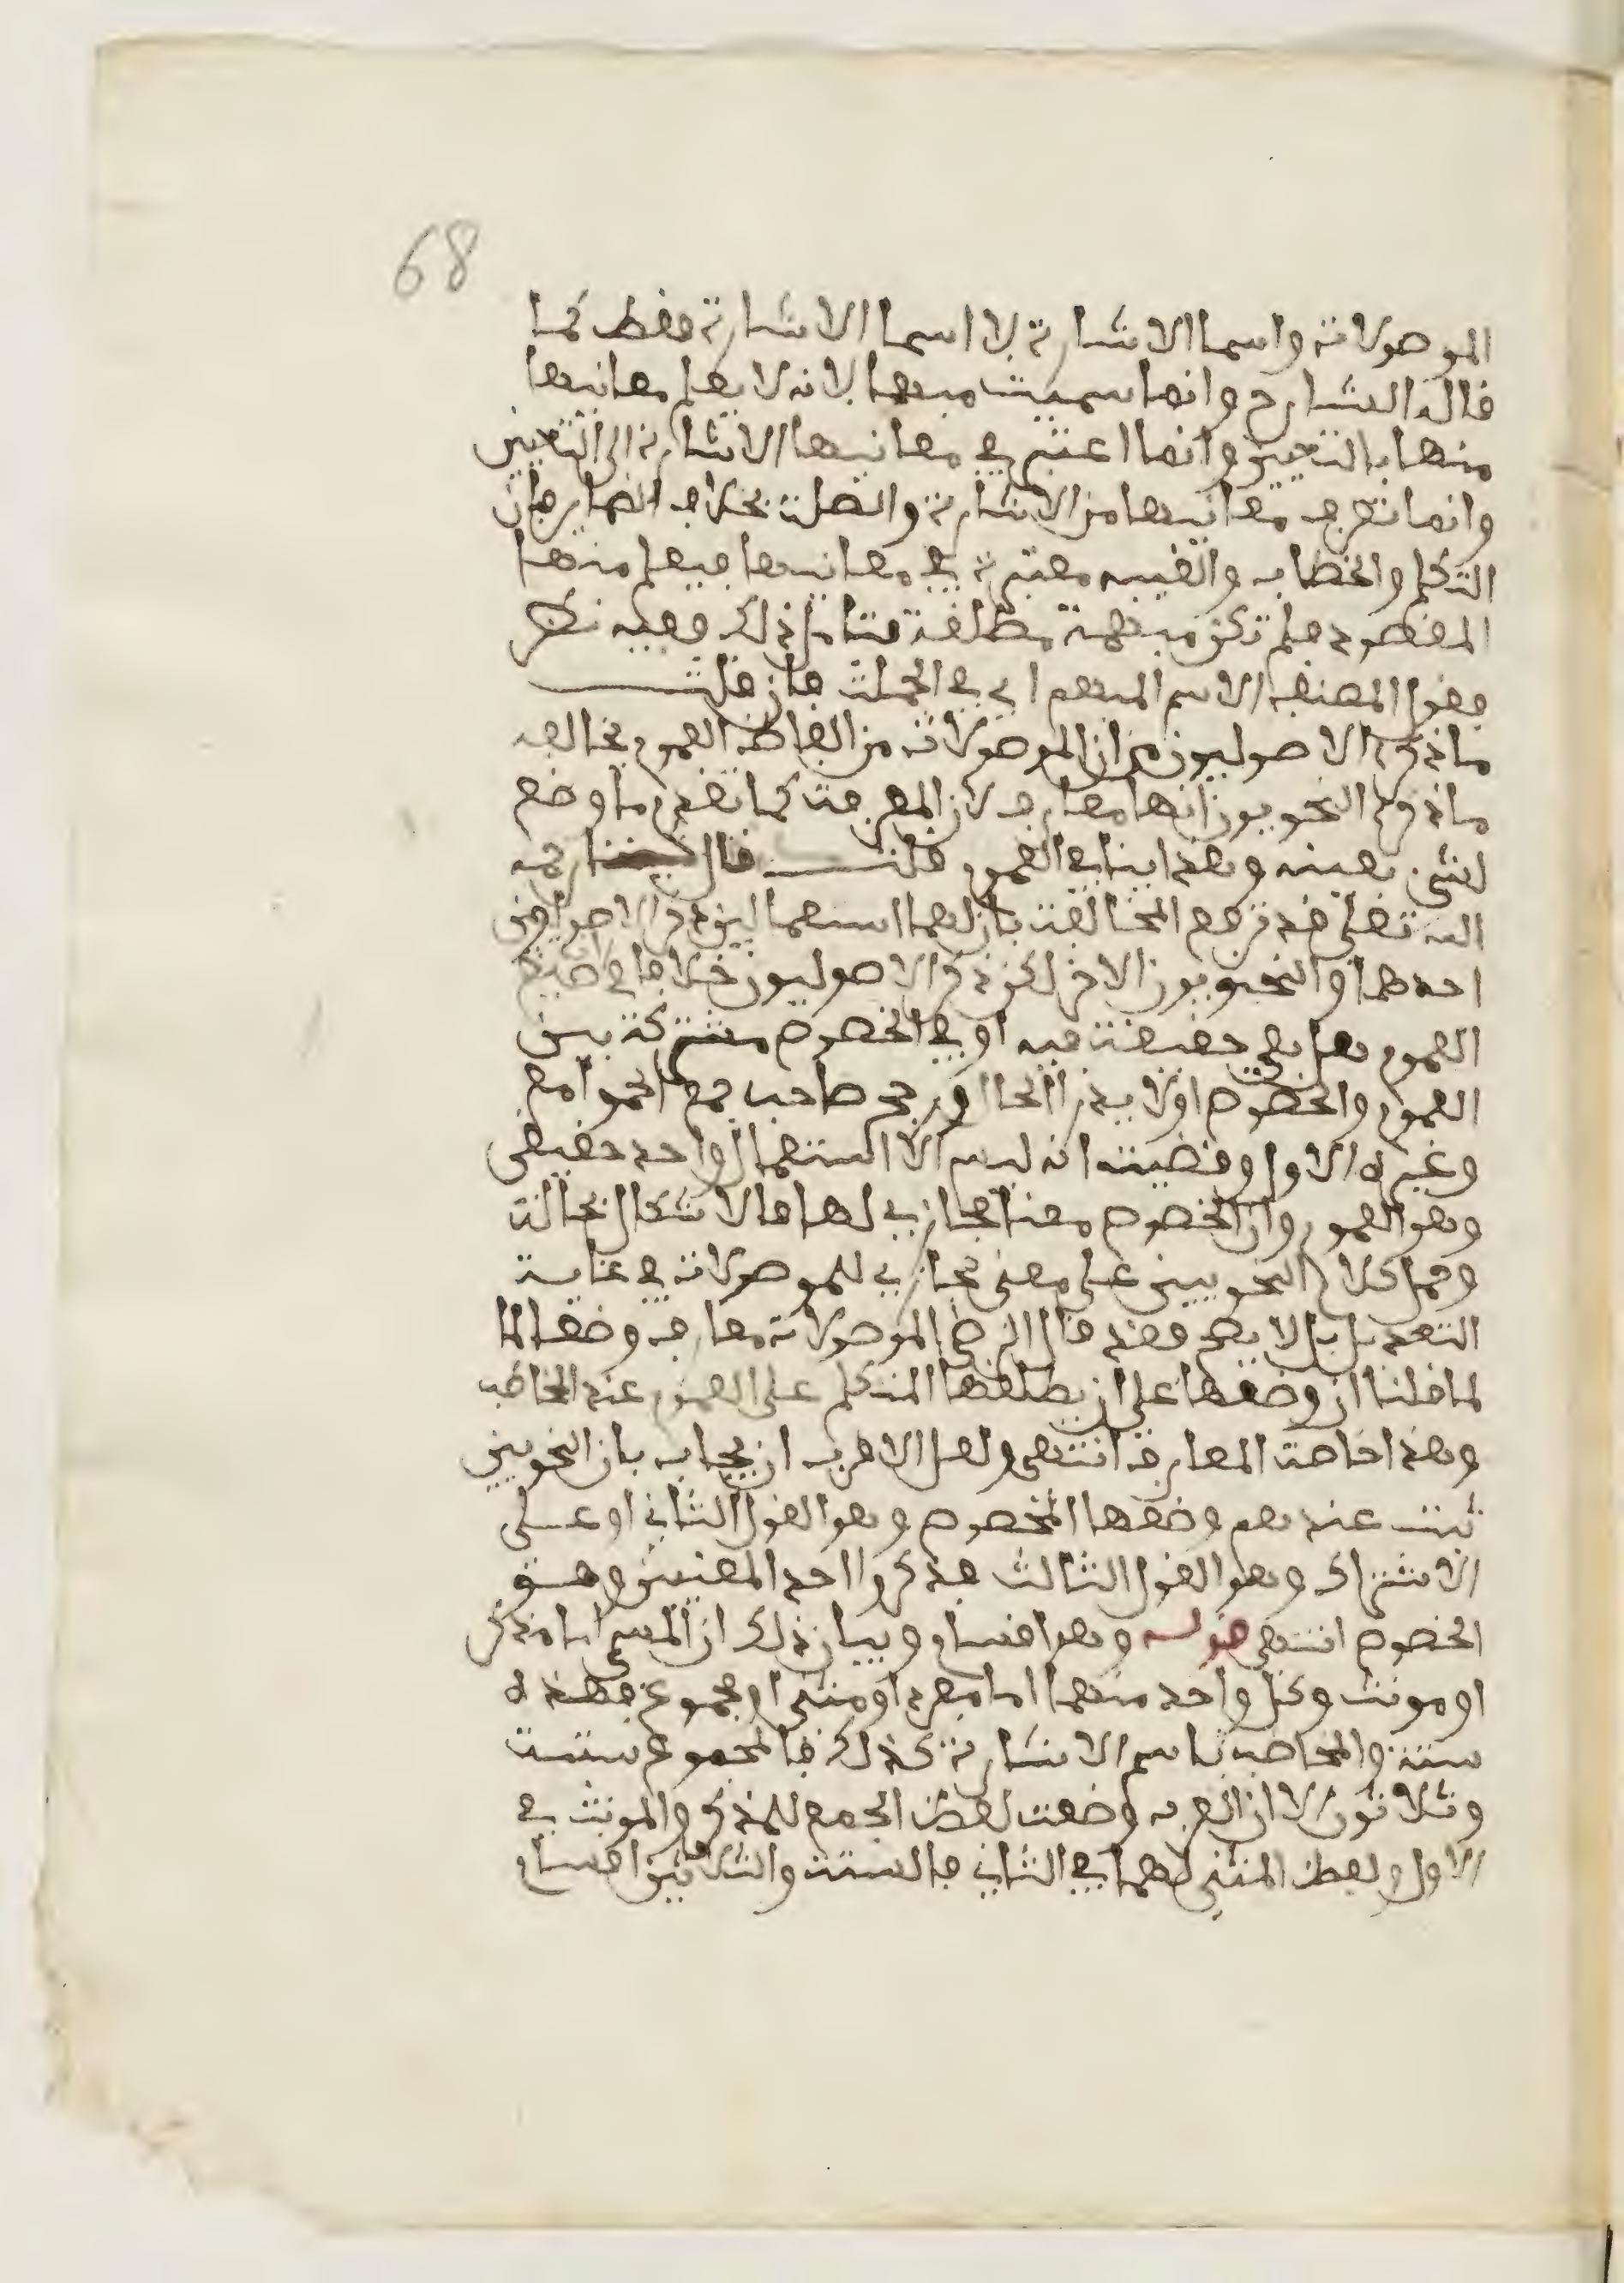 68
الموصولات واسما الاشارة لا اسما الاشارة فقط كما
قاله الشارح وانما سميت مبهما لانه لا يعلم معانيها
منها بالتعيين وانما اعتبر في معانيها الاشارة الى التعيين
وانما تعرف معانيها من الاشارة والصلة بخلاف الضماير فان
التكلم والخطاب والغيبه معتبرة في معانيها فيعلم منها
المقصود فلم تكن مبهمة مطلقة فتامل ذلك ففيه نظر
فقول المصنف الاسم المبهم اي في الجملة فان قلت
ما ذكره الاصوليون من ان الموصولات من الفاظ العموم يخالف
ما ذكره النحويون انها معارف لان المعرفة كما تقدم ما وضع
لشي بعينه وهذا ينافي العموم قلت قال شيخنا رحمه
الله تعلى قد ترفع المخالفة بان لهما استعمالين ذكر الاصوليون
احدهما والنحويون الاخر لكن ذكر الاصوليون خلافا في صيغ
العموم هل هي حقيقة فيه او في الخصوص مشتركة بين
العموم والخصوص اولا يدرا الحال ورجح صاحب جمع الجوامع
وغيره الاول وقضيته انه ليس الا استعمال واحد حقيقي
وهو العموم وان الخصوص معنا مجازي لها فالاشكال بحاله
وحمل كلام النحويين على معنى مجازي للموصولات في غاية
التعديل بل لا يصح فقد قال الرضي الموصولات معارف وضعا لما
لما قلنا ان وضعها على ان يطلقها المتكلم على المعلوم عند المخاطب
وهذا خاصة المعارف انتهى ولعل الاقرب ان يجاب بان النحويين
ثبت عندهم وضعها للخصوص وهو القول الثاني او على
الاشتراك وهو القول الثالث فذكروا احد المعنيين وهو
الخصوص انتهى قوله وهو اقسام وبيان ذلك ان المسمى اما مذكر
او مونث وكل واحد منهما اما مفرد او مثنى او مجموع فهذه
ستة والمخاطب باسم الاشارة كذلك فالمجموع ستة
وثلاثون الا ان العرب وضعت لفظ الجمع للمذكر والمونث في
الاول ولفظ المثنى لهما في الثاني فالستة والثلاثين اقسام